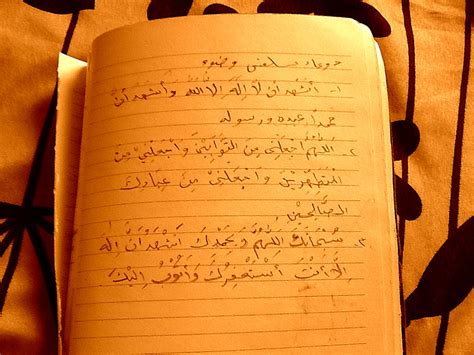 دوعاء سلفى وضوء
١- أَشْهَدُ أَنْ لَا إِلٰهَ إِلَّا اللَّهُ وَأَشْهَدُ أَنَّ
محمداً عبده ورسوله
٢- اللَّهُمَّ اجْعَلْنِي مِنَ التَّوَّابِيْنَ وَاجْعَلْنِيْ مِنَ
الْمُتَطَهِّرِيْنَ وَاجْعَلْنِيْ مِنْ عِبَادِكَ
الصَّالِحِيْنَ
٣- سُبْحَانَكَ اللَّهُمَّ وَبِحَمْدِكَ أَشْهَدُ أَنْ إِلٰهَ
إِلَّا أَنْتَ أَسْتَغْفِرُكَ وَأَتُوْبُ إِلَيْكَ